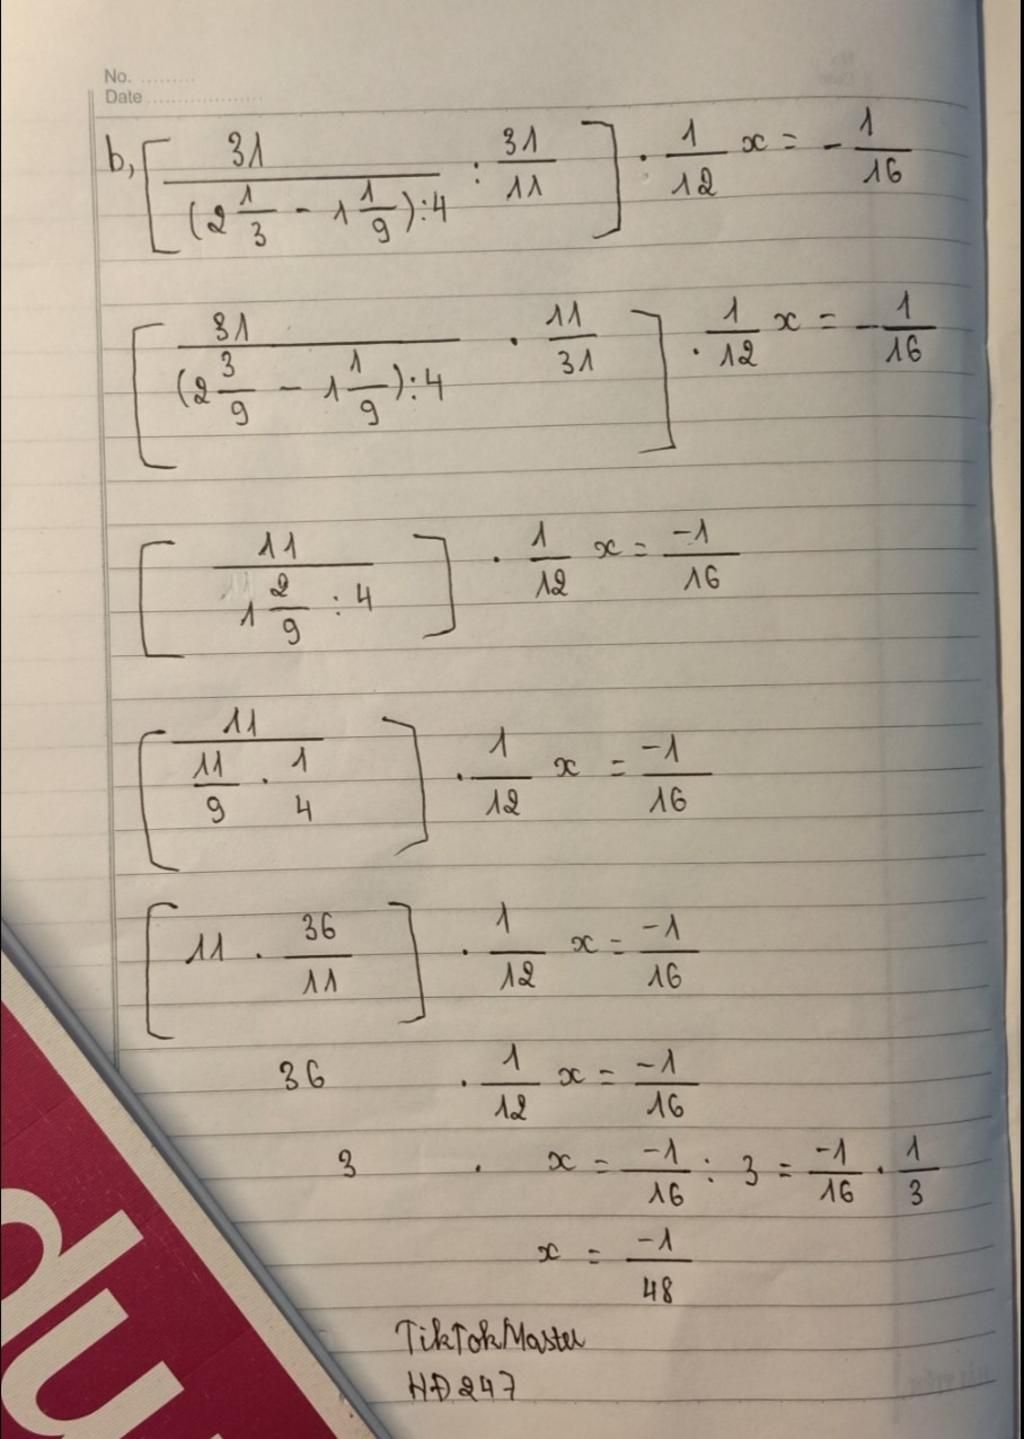 No. .........
Date ...................
b, [ 31 / ((2 1/3 - 1 1/9) : 4) : 31/11 ] . 1/12 x = - 1/16
[ 31 / ((2 3/9 - 1 1/9) : 4) . 11/31 ] . 1/12 x = - 1/16
[ 11 / (1 2/9 : 4) ] . 1/12 x = -1/16
[ 11 / (11/9 . 1/4) ] . 1/12 x = -1/16
[ 11 . 36/11 ] . 1/12 x = -1/16
36 . 1/12 x = -1/16
3 . x = -1/16 : 3 = -1/16 . 1/3
x = -1/48
TikTokMaster
HĐ247
du